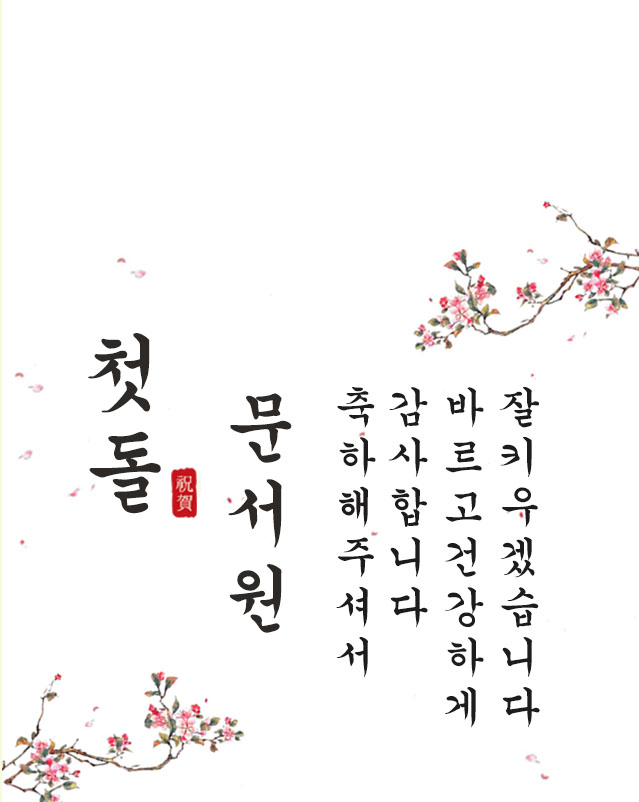 첫돌
祝賀
문서원
축하해주셔서
감사합니다
바르고건강하게
잘키우겠습니다